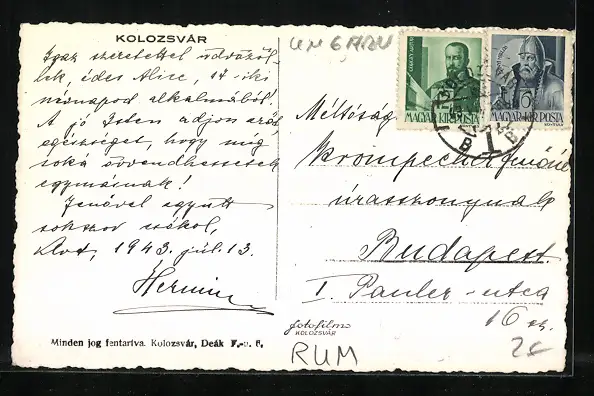 KOLOZSVÁR
Igaz szeretettel üdvözöl-
lek, édes Alice, 14-iki
névnapod alkalmából!
A jó Isten adjon erőt,
egészséget, hogy még
soká örvendhessetek
egymásnak!
Jenővel együtt
sokszor csókol,
1943. júl. 13.
Hermin
Minden jog fentartva. Kolozsvár, Deák F.-u. 6.
UNGARU
GÖRGEY ARTUR
MAGYAR KIR. POSTA
6
MAGYAR KIR. POSTA
Méltóság
Krompecher Jenőné
úrasszonynak
Budapest.
I. Pauler-utca
16 sz.
fotofilm
KOLOZSVÁR
RUM